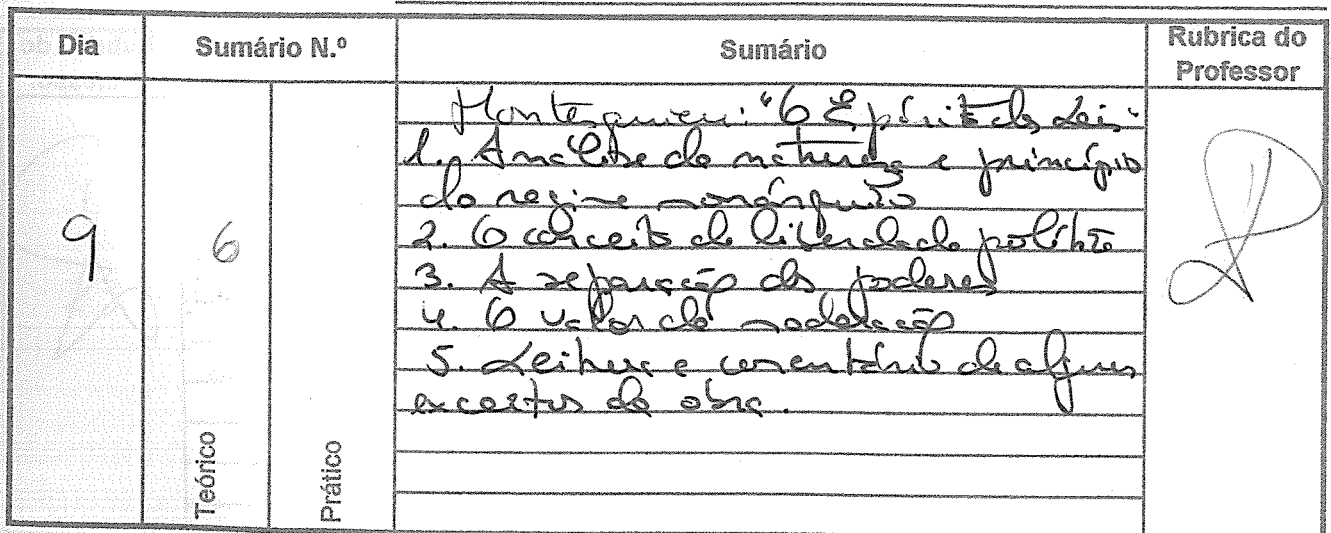 Dia
Sumário N.º
Sumário
Rubrica do
Professor
Montesquieu: "O Espírito das Leis"
1. Análise da natureza e princípio
do regime monárquico
2. O conceito de liberdade política
3. A separação dos poderes
4. O valor da moderação
5. Leitura e comentário de alguns
excertos da obra.
9
6
Teórico
Prático